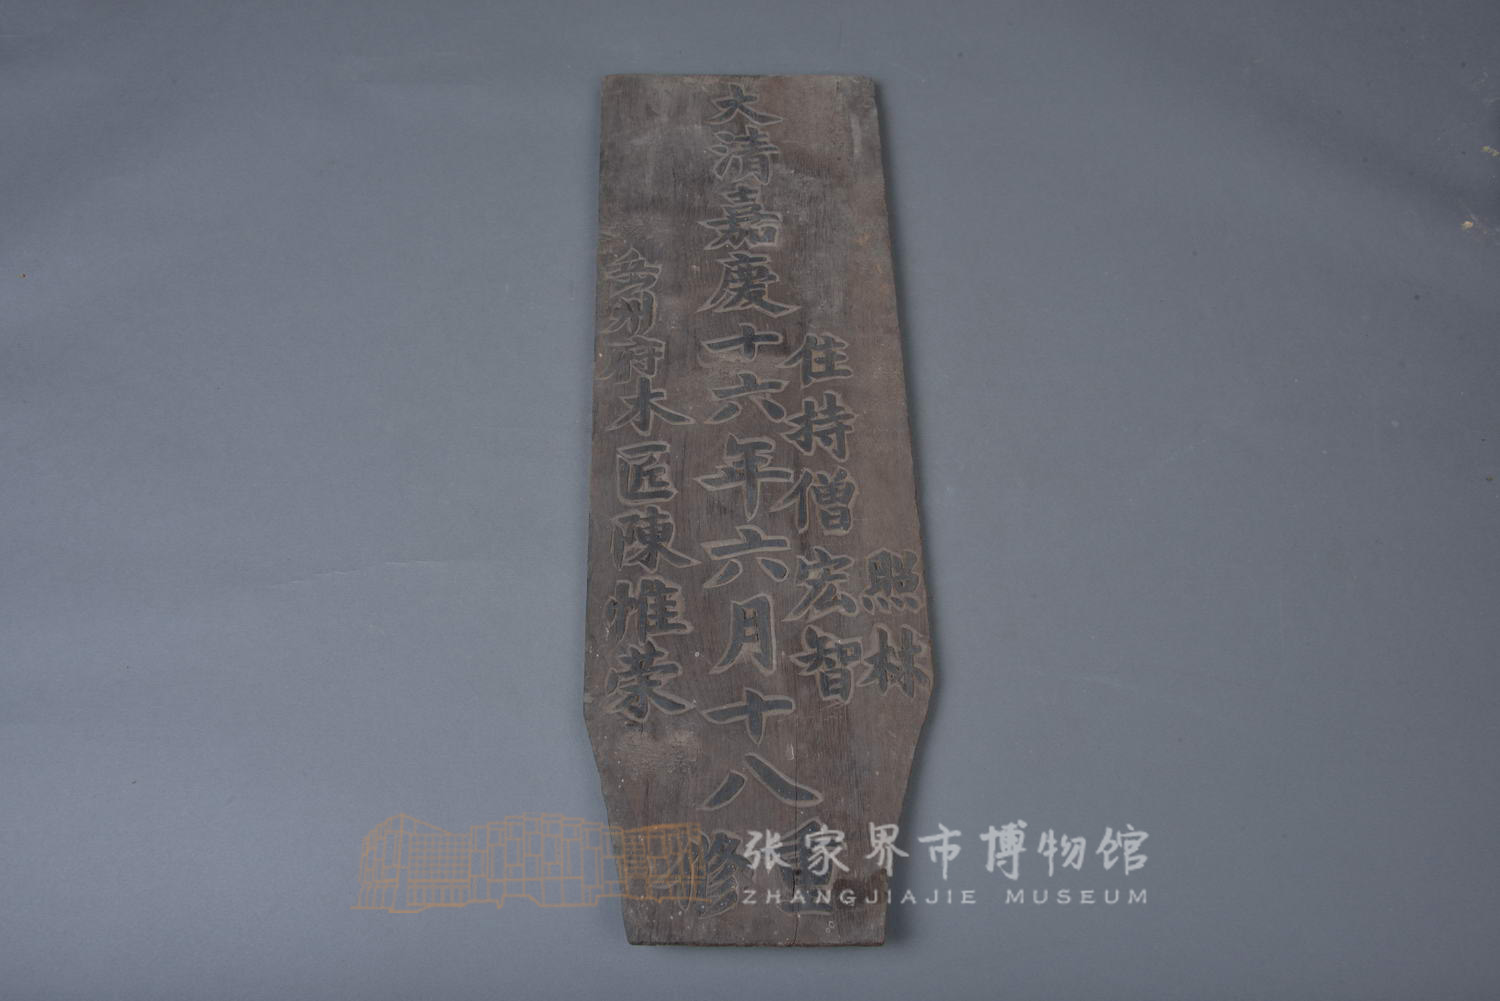 照林
住持僧宏智
大清嘉慶十六年六月十八
重修
岳州府木匠陳惟荣
张家界市博物馆
ZHANGJIAJIE MUSEUM